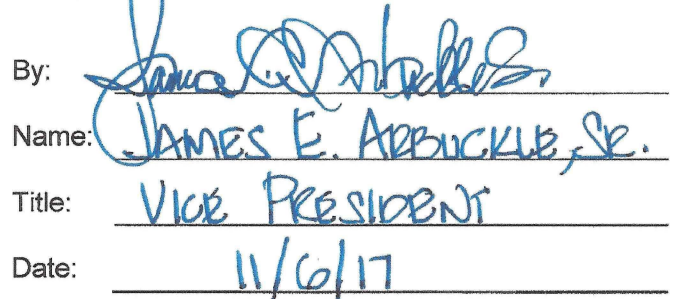 By: James E. Arbuckle, Sr.
Name: JAMES E. ARBUCKLE, SR.
Title: VICE PRESIDENT
Date: 11/6/17